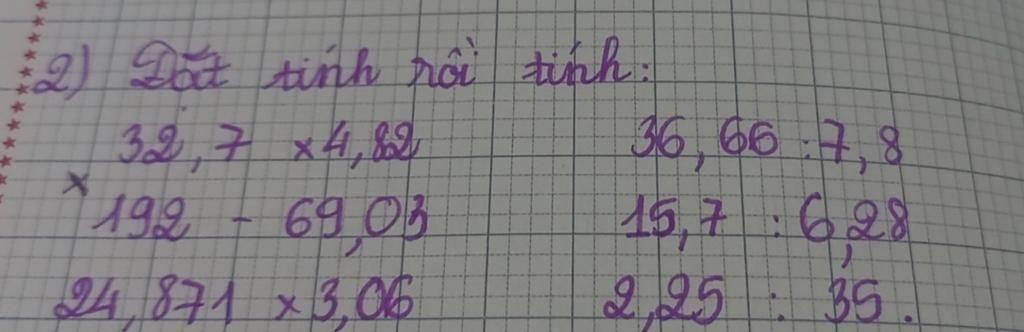 2) Đặt tính rồi tính:
32,7 x 4,82 36,66 : 7,8
x 192 - 69,03 15,7 : 6,28
24,871 x 3,06 2,25 : 35.